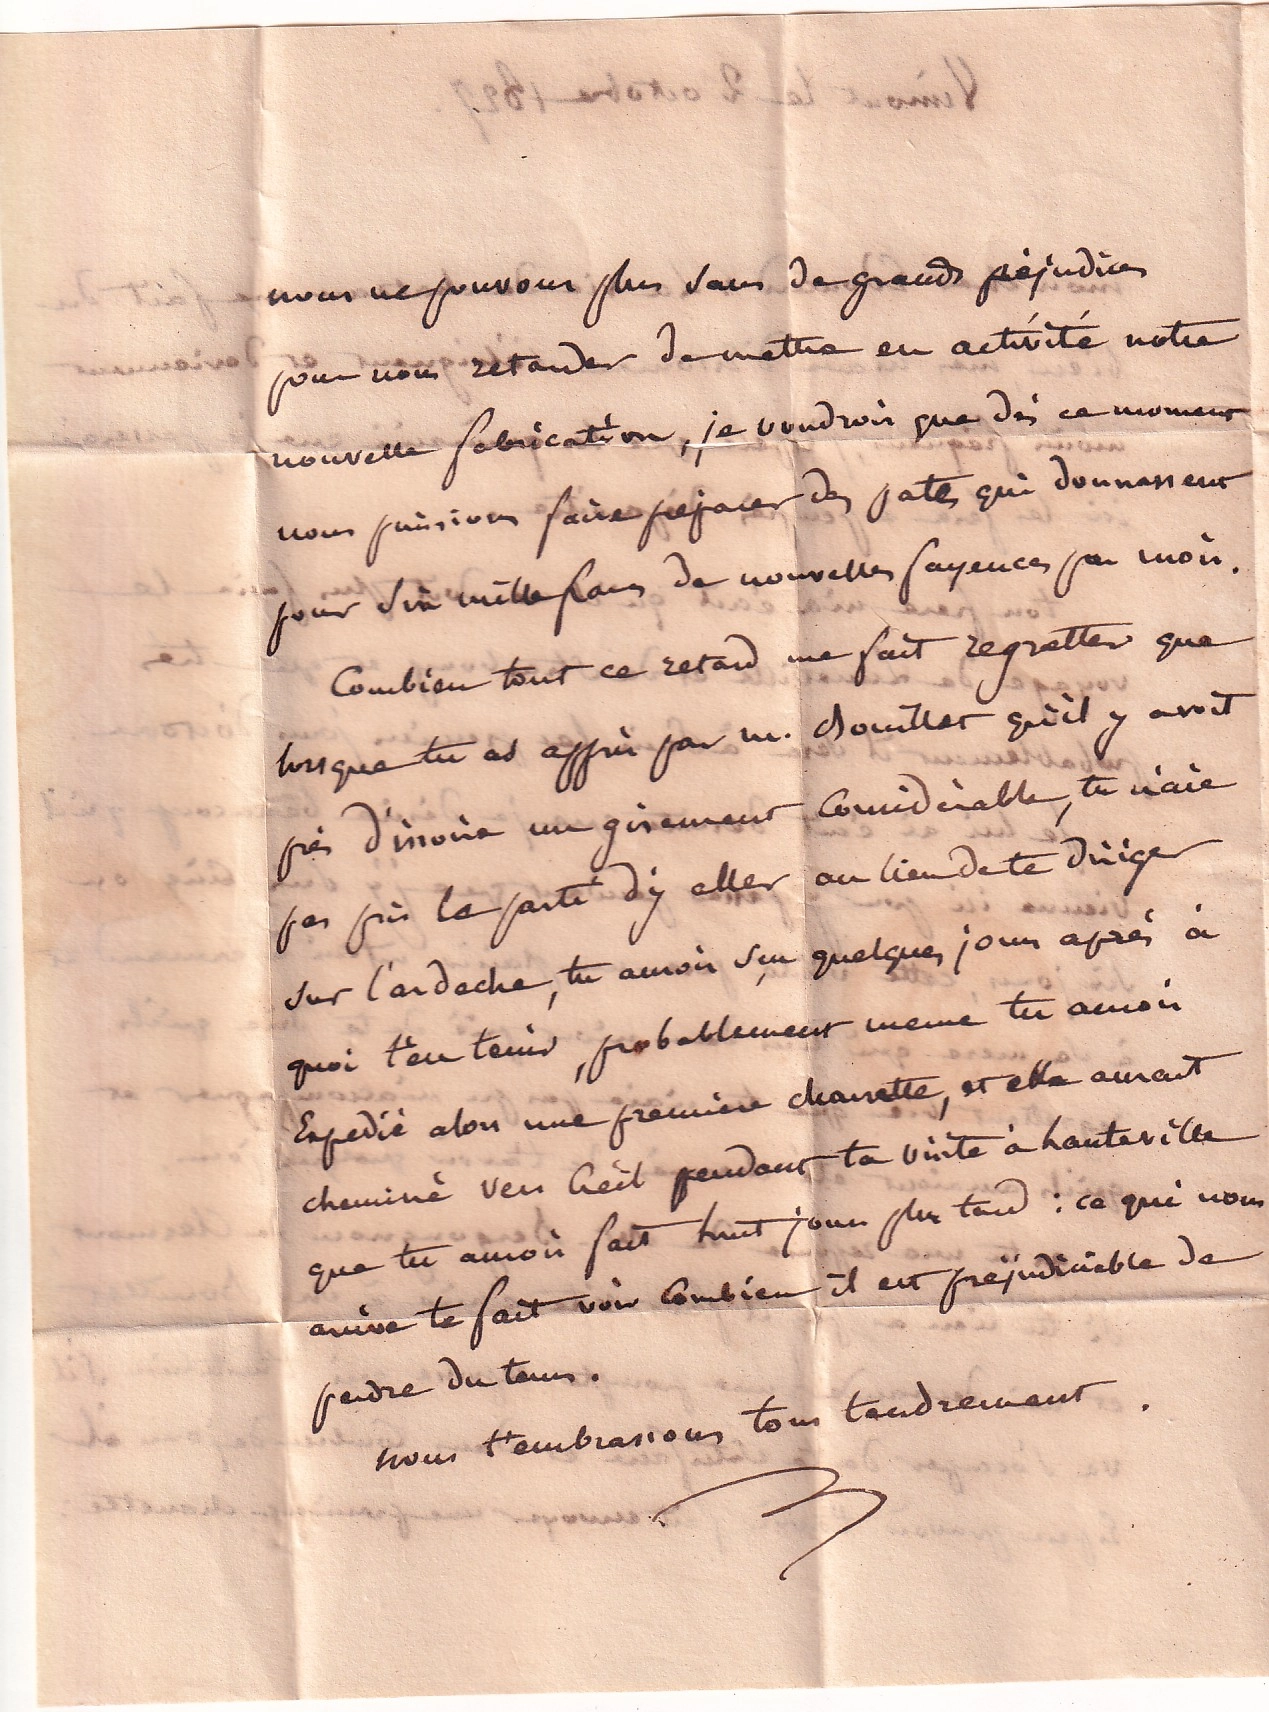 nous ne pouvons plus sans de grands préjudices
pour nous retarder de mettre en activité notre
nouvelle fabrication, je voudrois que dès ce moment
nous puissions faire préparer des pates qui donnassent
pour six mille francs de nouvelles fayences par mois.
Combien tout ce retard me fait regretter que
lorsque tu as appris par m. Bouillet qu'il y avoit
près d'issoire un gisement considérable, tu n'aie
pas pris le parti d'y aller au lieu de te diriger
sur l'ardeche, tu aurois sçu quelques jours après à
quoi t'en tenir, probablement meme tu aurois
Expedié alors une premiere charrette, et elle aurait
cheminé vers Creil pendant ta visite à hauteville
que tu aurois fait huit jours plus tard : ce qui nous
arrive te fait voir combien il est préjudiciable de
perdre du tems.
nous t'embrassons tous tendrement.